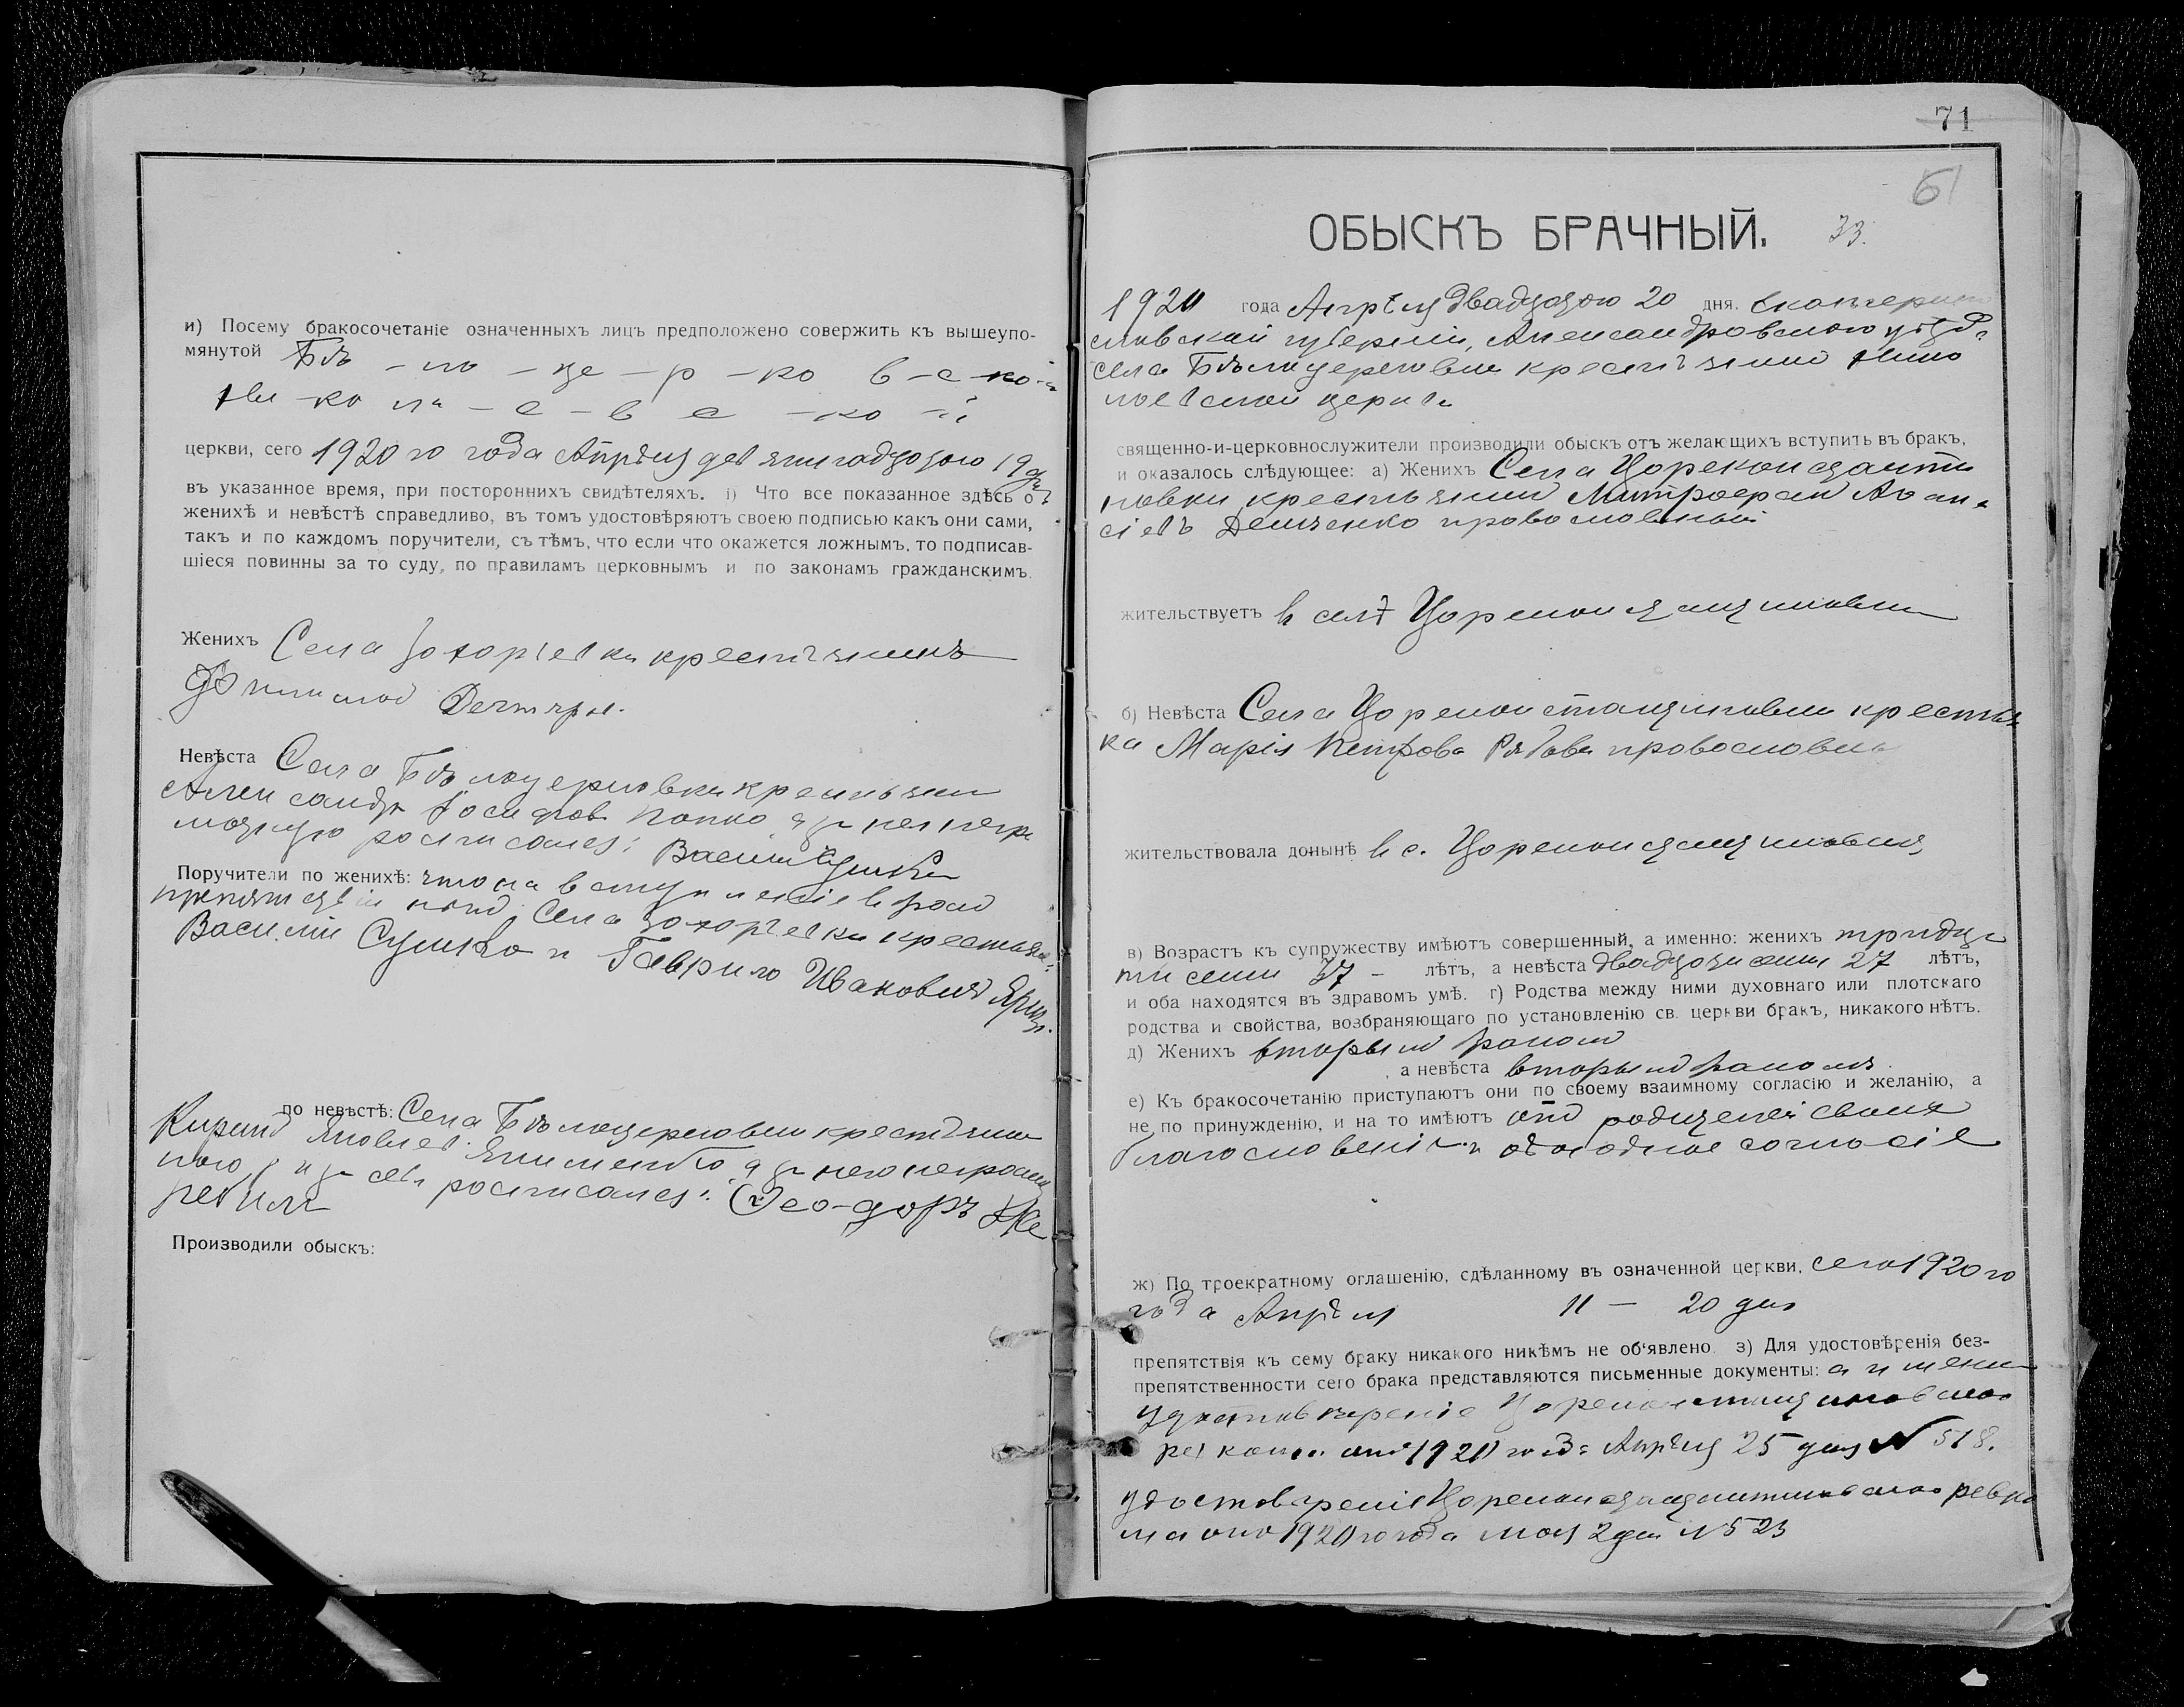 и) Посему бракосочетаніе означенныхъ лицъ предположено совержить къ вышеупо-
мянутой Бѣ - ло - це - р - ко в - с - ко - й
Ни - ко ла - е - в с - ко - й
церкви, сего 1920 го года Апрѣля девятнадцатаго 19 дня
въ указанное время, при постороннихъ свидѣтеляхъ. і) Что все показанное здѣсь о
женихѣ и невѣстѣ справедливо, въ томъ удостовѣряютъ своею подписью какъ они сами,
такъ и по каждомъ поручители, съ тѣмъ, что если что окажется ложнымъ, то подписав-
шіеся повинны за то суду, по правиламъ церковнымъ и по законамъ гражданскимъ.
Женихъ Села крестьянинъ
Невѣста Села Бѣлоцерковки
Попко, а за нея негра
мотную росписался: Василій Сушко
Поручители по женихѣ: что на вступленіе в
Села крестьяне
Василій Сушко и Гаврило Иванович
по невѣстѣ: Села Бѣлоцерковки
Яковлев. а за него неграмот
наго и за себя росписался: Ѳеодоръ Же
ребило
Производили обыскъ:
71
61
ОБЫСКЪ БРАЧНЫЙ. 33.
1920 года Апрѣля двадцатаго 20 дня. Екатерино
славской губерніи, Александровского уѣзда
села Бѣлоцерковки Нико
лаевской церкви
священно-и-церковнослужители производили обыскъ отъ желающихъ вступить въ бракъ,
и оказалось слѣдующее: а) Женихъ Села Цареконстанти
новки крестьянин Митрофан Афана
сіевъ Демченко провославный
жительствуетъ в селѣ Цареконстантиновки
б) Невѣста Села Цареконстантиновки крестьян
ка Марія Петрова Рябова провославна
жительствовала донынѣ в с. Цареконстантиновки
в) Возрастъ къ супружеству имѣютъ совершенный, а именно: женихъ тридца
ти семи 37 - лѣтъ, а невѣста двадцати семи 27 лѣтъ,
и оба находятся въ здравомъ умѣ. г) Родства между ними духовнаго или плотскаго
родства и свойства, возбраняющаго по установленію св. церкви бракъ, никакого нѣтъ.
д) Женихъ вторым браком
а невѣста вторым браком
е) Къ бракосочетанію приступаютъ они по своему взаимному согласію и желанію, а
не по принужденію, и на то имѣютъ от родителей своих
благословеніе и обоюдное согласіе
ж) По троекратному оглашенію, сдѣланному въ означенной церкви, сего 1920 го
года Апрѣля 11 — 20 дня
препятствія къ сему браку никакого никѣмъ не об'явлено. з) Для удостовѣренія без-
препятственности сего брака представляются письменные документы:
удостовѣреніе Цареконстантиновскаго
1920 года Апрѣля 25 дня № 518.
удостовѣреніе Цареконстантиновскаго ревко
ма от 1920 го года Мая 2 дня № 523